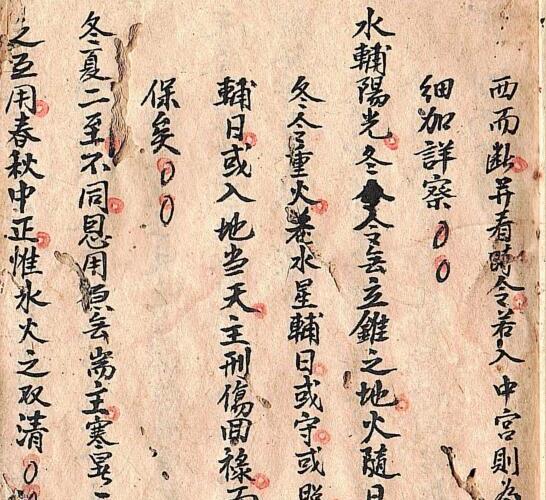 西而断并看时令若入中宮則為
细加詳察
水輔陽光冬令岂立錐之地火隨日
冬令重火暴水星輔日或守或照
輔日或入地当天主刑傷回禄而
保矣
冬夏二至不同恩用須岂耑主寒暑
之互用春秋中正惟水火之取清